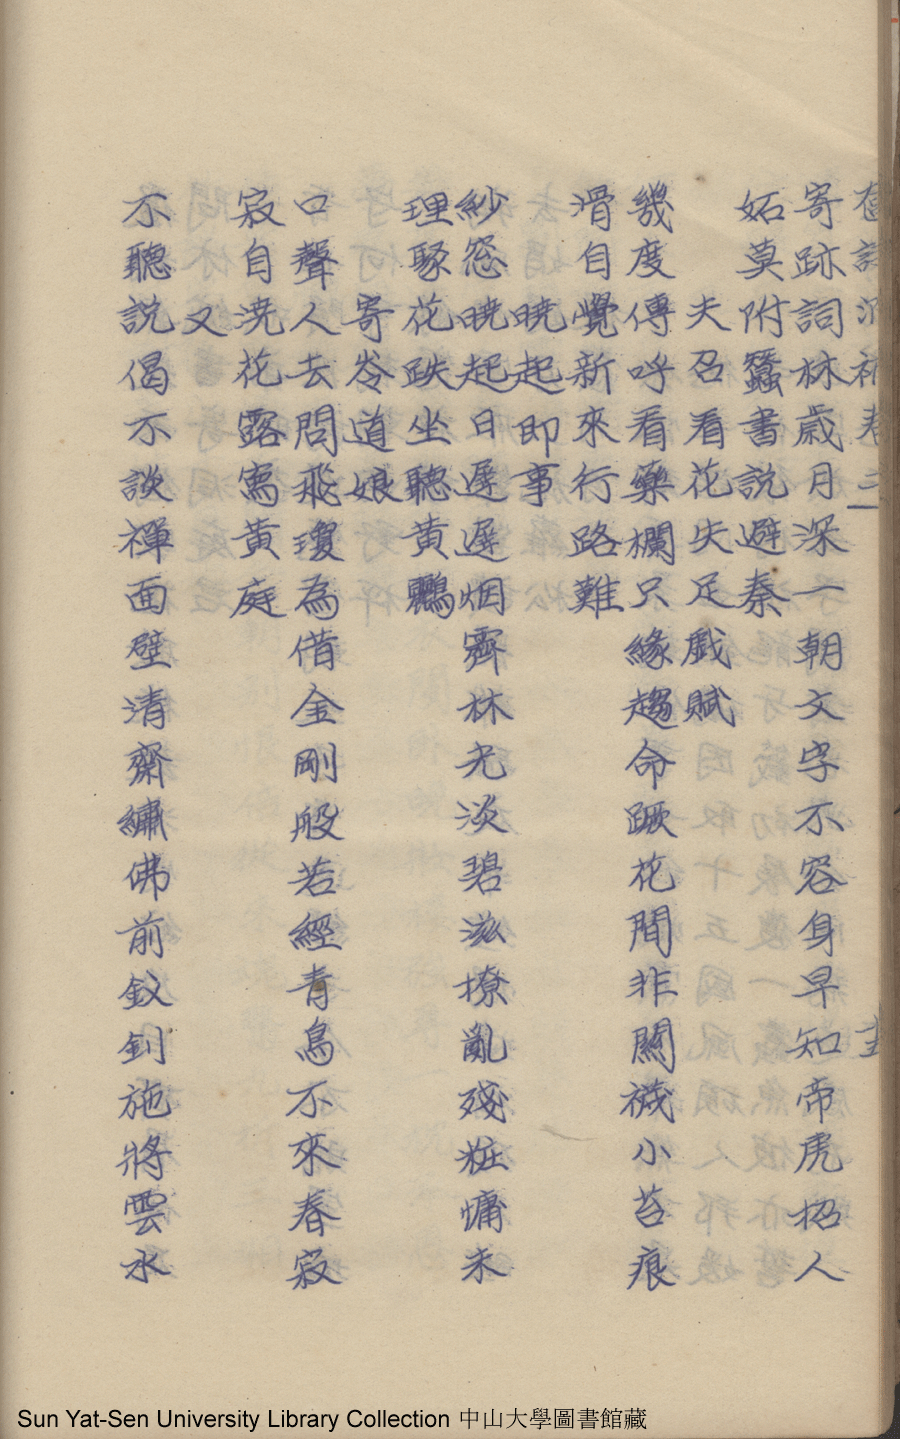 卷三
寄跡詞林歲月深一朝文字不容身早知帝虎招人
妬莫附蠶書說避秦
夫召看花失足戲賦
幾度傳呼看藥欄只緣趨命蹶花間非關襪小苔痕
滑自覺新來行路難
曉起即事
紗窓曉起日遲遲烟霽林光淡碧滋撩亂殘粧慵未
理聚花趺坐聽黃鸝
寄岺道娘
口聲人去問飛瓊為借金剛般若經青鳥不來春寂
寂自澆花露寫黃庭
又
不聽說偈不談禪面壁清齋繡佛前釵釧施將雲水
Sun Yat-Sen University Library Collection 中山大學圖書館藏